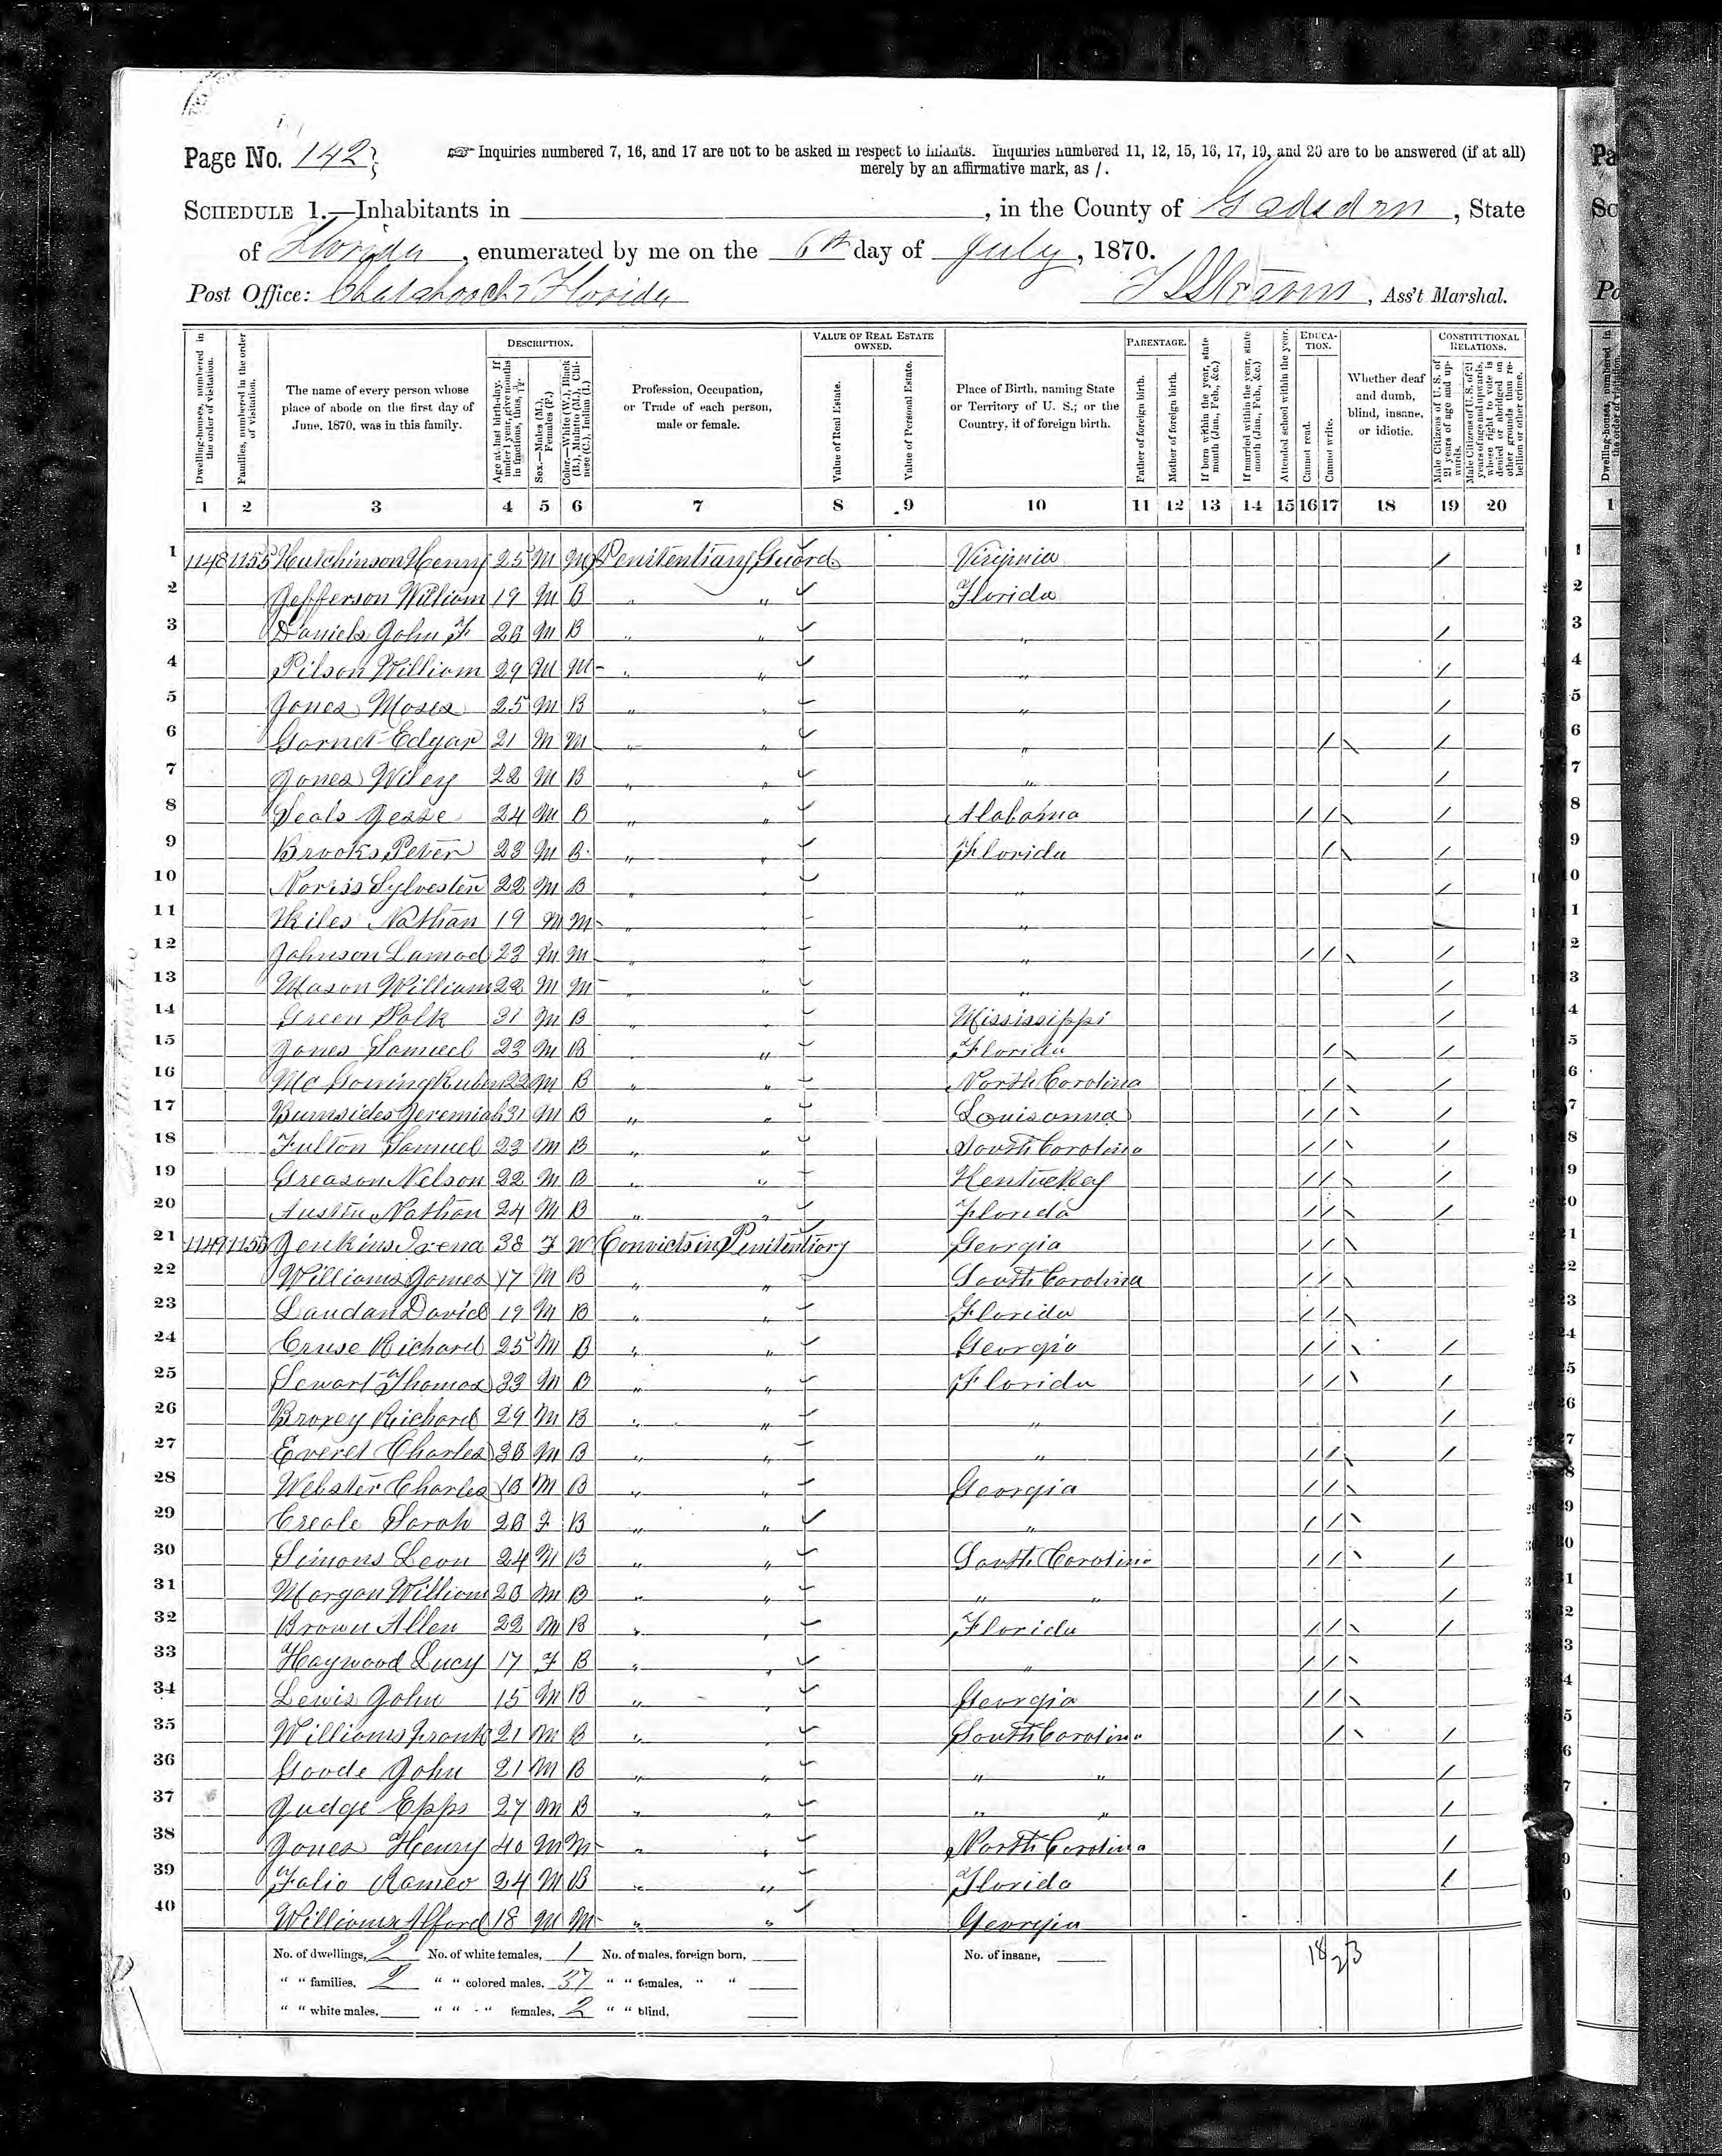 Page No. 142
Inquiries numbered 7, 16, and 17 are not to be asked in respect to infants. Inquiries numbered 11, 12, 15, 16, 17, 19, and 20 are to be answered (if at all)
merely by an affirmative mark, as /.
SCHEDULE 1.—Inhabitants in , in the County of Gadsden, State
of Florida, enumerated by me on the 6th day of July, 1870.
Post Office: Florida , Ass't Marshal.
Dwelling-houses, numbered in the order of visitation.
Families, numbered in the order of visitation.
The name of every person whose place of abode on the first day of June, 1870, was in this family.
DESCRIPTION.
Age at last birth-day. If under 1 year, give months in fractions, thus,
Sex.—Males (M.), Females (F.)
Color.—White (W.), Black (B.), Mulatto (M.), Chinese (C.), Indian (I.)
Profession, Occupation, or Trade of each person, male or female.
VALUE OF REAL ESTATE OWNED.
Value of Real Estate.
Value of Personal Estate.
Place of Birth, naming State or Territory of U. S.; or the Country, if of foreign birth.
PARENTAGE.
Father of foreign birth.
Mother of foreign birth.
If born within the year, state month (Jan., Feb., &c.)
If married within the year, state month (Jan., Feb., &c.)
Attended school within the year.
EDUCATION.
Cannot read.
Cannot write.
Whether deaf and dumb, blind, insane, or idiotic.
CONSTITUTIONAL RELATIONS.
Male Citizens of U. S. of 21 years of age and upwards.
Male Citizens of U. S. of 21 years of age and upwards, whose right to vote is denied or abridged on other grounds than rebellion or other crime.
1 2 3 4 5 6 7 8 9 10 11 12 13 14 15 16 17 18 19 20
1 1148 1155 Hutchinson Henry 25 M M Penitentiary Guard Virginia /
2 Jefferson William 19 M B " " Florida
3 Daniels John F 26 M B " " " /
4 Pilson William 29 M M " " " /
5 Jones Moses 25 M B " " " /
6 Garnet Edgar 21 M M " " " / /
7 Jones Wiley 22 M B " " " /
8 Seals Jesse 24 M B " " Alabama / / /
9 Brooks Peter 23 M B " " Florida / /
10 Noriss Sylvester 22 M B " " " /
11 Nathan 19 M M " " "
12 Johnson 23 M M " " " / / /
13 Mason William 22 M M " " " /
14 Green Polk 31 M B " " Mississippi /
15 Jones Samuel 23 M B " " Florida / /
16 22 M B " " North Carolina / /
17 Burnsides Jeremiah 31 M B " " Louisanna / / /
18 Fulton Samuel 23 M B " " South Carolina / / /
19 Greason Nelson 22 M B " " Kentuckey / / /
20 Austin Nathan 24 M B " " Florida / / /
21 1149 Jenkins Irena 38 F W Convicts in Penitentiory Georgia / /
22 Williams James 17 M B " " South Carolina / /
23 Laudan David 19 M B " " Florida / /
24 Cruse Richard 25 M B " " Georgia / / /
25 Sewart Thomas 33 M B " " Florida / / /
26 Broxey Richard 29 M B " " " /
27 Everet Charles M B " " " / / /
28 Webster Charles M B " " Georgia / /
29 Creole Sarah F B " " " / /
30 Simons Leon 24 M B " " South Carolina / / /
31 Morgan William M B " " " " /
32 Brown Allen M B " " Florida / / /
33 Haywood Lucy 17 F B " " " / /
34 Lewis John 15 M B " " Georgia / /
35 Williams Frank 21 M B " " South Carolina / /
36 Goode John 21 M B " " " " /
37 Judge Epps 27 M B " " " " /
38 Jones Henry 40 M M " " North Carolina /
39 Falio Romeo 24 M B " " Florida /
40 Williams Alford 18 M M " " Georgia
No. of dwellings, 2 No. of white females, 1 No. of males, foreign born, No. of insane,
" " families, 2 " " colored males, 37 " " females, " "
" " white males, " " " females, 2 " " blind,